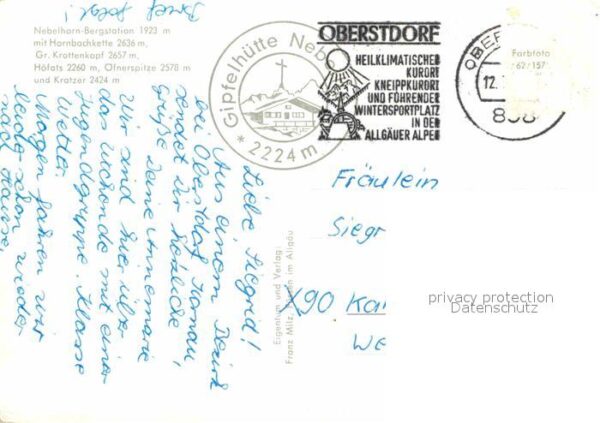 Brief folgt!
Nebelhorn-Bergstation 1923 m
mit Hornbachkette 2636 m,
Gr. Krottenkopf 2657 m,
Höfats 2260 m, Ofnerspitze 2578 m
und Kratzer 2424 m
Gipfelhütte Nebel
* 2224 m *
OBERSTDORF
HEILKLIMATISCHER
KURORT
KNEIPPKURORT
UND FÜHRENDER
WINTERSPORTPLATZ
IN DER
ALLGÄUER ALPEN
OBER
12.
898
Farbfoto
62/157
Liebe Sigrid!
Aus einem Bezirk
bei Oberstdorf
sendet dir herzliche
Grüße Deine Annemarie
Wir sind hier über
das Wochende mit einer
Jugendgruppe. Klasse
Wetter.
Morgen fahren wir
leider schon wieder
nach Hause.
Eigentum und Verlag:
Franz Milz, im Allgäu
Fräulein
Siegr
X90 Kai
We
privacy protection
Datenschutz